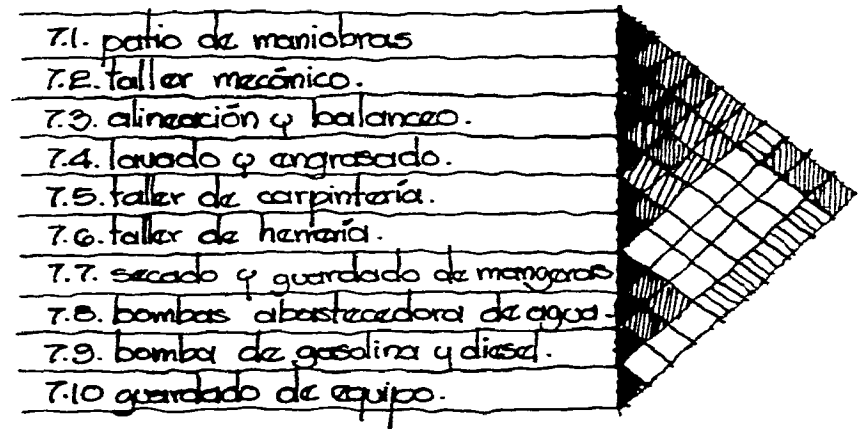 7.1. patio de maniobras
7.2. taller mecánico.
7.3. alineación y balanceo.
7.4. lavado y engrasado.
7.5. taller de carpintería.
7.6. taller de herrería.
7.7. secado y guardado de mangeras
7.8. bombas abastecedora de agua.
7.9. bomba de gasolina y diesel.
7.10 guardado de equipo.